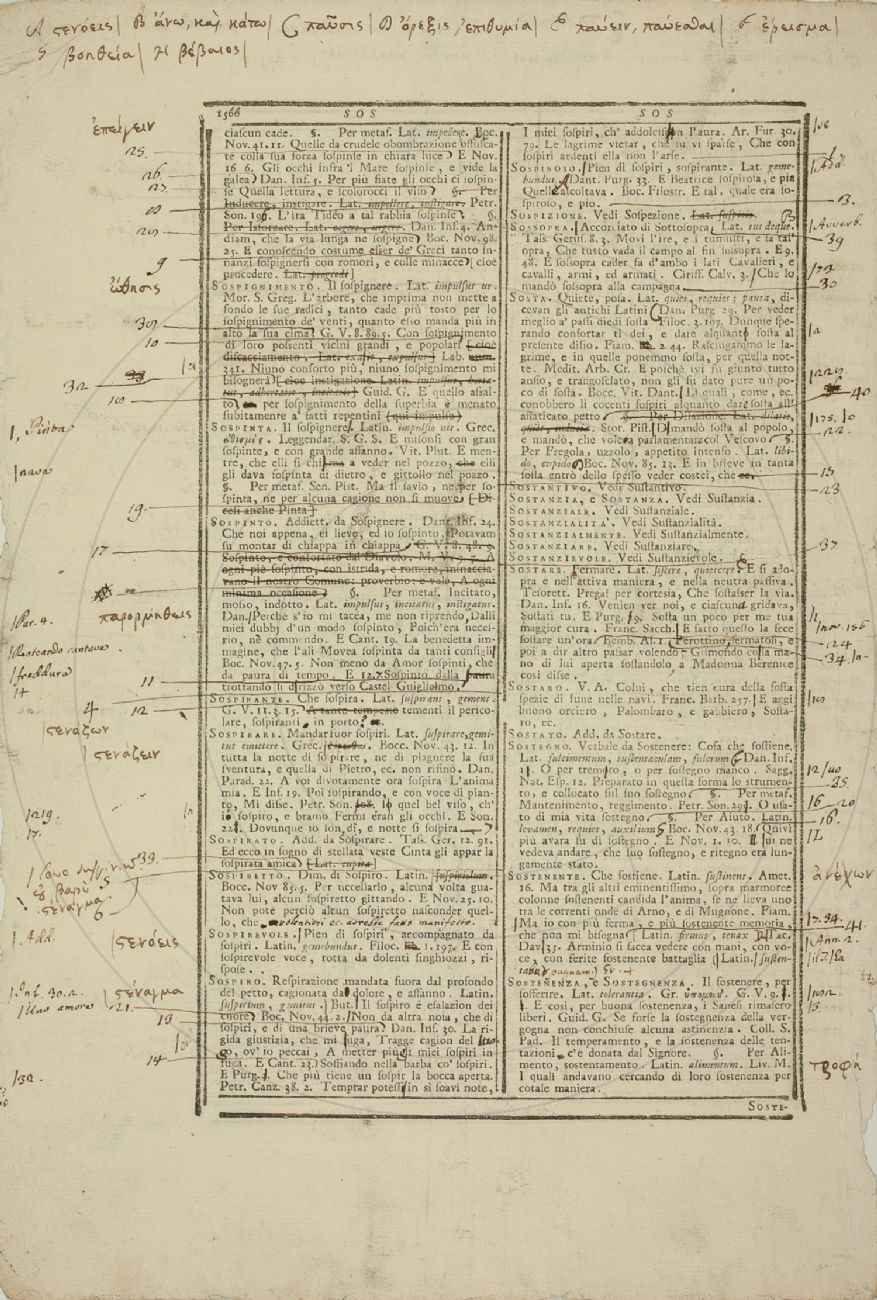 A στενόεις| B ἄνω, καὶ κάτω| C παῦσις| D ὄρεξις, ἐπιθυμία| E παύειν, παύεσθαι| F ἔρεισμα|
G βοηθεία| H βέβαιος|
1566 SOS SOS
ciascun cade. §. Per metaf. Lat. impellere. Boc.
Nov. 41. 11. Quelle da crudele obombrazione offusca-
te colla sua forza sospinse in chiara luce E Nov.
16 6. Gli occhi infra 'l Mare sospinse, e vide la
galea Dan. Inf. 5. Per più fiate gli occhi ci sospin-
se Quella lettura, e scolorocci il viso §. Per
Inducere, instigare. Lat. impellere, instigare. Petr.
Son. 196. L'ira Tideo a tal rabbia sospinse §.
Per Isforzare. Lat. cogere, urgere. Dan. Inf. 4. An-
diam, che la via lunga ne sospigne Boc. Nov. 98.
25. E conoscendo costume esser de' Greci tanto in-
nanzi sospignersi con romori, e colle minacce [cioè
procedere. Lat. progredi]
SOSPIGNIMENTO. Il sospignere. Lat. impulsus us.
Mor. S. Greg. L'arbore, che imprima non mette a
fondo le sue radici, tanto cade più tosto per lo
sospignimento de' venti, quanto esso manda più in
alto la sua cima G. V. 8. 89. 5. Con sospignimento
di loro possenti vicini grandi, e popolari [cioè
discacciamento. Lat. exactio, expulsus] Lab. num.
341. Niuno conforto più, niuno sospignimento mi
bisognerà [cioè instigazione. Latin. impulsus, horta-
tus, Guid. G. E quello assal-
to per sospignimento della superbia è menato
subitamente a' fatti repentini (qui impulso)
SOSPINTA. Il sospignere. Latin. impulsio nis. Grec.
ὠθισμός. Leggendar. S. G. S. E misonsi con gran
sospinte, e con grande affanno. Vit. Plut. E men-
tre, che elli si chinava a veder nel pozzo, che elli
gli dava sospinta di dietro, e gittollo nel pozzo.
§. Per metaf. Sen. Pist. Ma il savio, ne per so-
spinta, ne per alcuna cagione non si muove [Di-
cesi anche Pinta]
SOSPINTO. Addiett. da Sospignere. Dant. Inf. 24.
Che noi appena, ei lieve, ed io sospinto, Potavam
su montar di chiappa in chiappa G. V. 8. 48. 9.
Sospinto, e confortato dal Diavolo. M. V. 9. 7. A
ogni piè sospinto, con istrida, e romore, minaccia-
vano il nostro Comune: proverbio: e vale, A ogni
minima occasione §. Per metaf. Incitato,
mosso, indotto. Lat. impulsus, incitatus, instigatus.
Dan. Perchè s'io mi tacea, me non riprendo, Dalli
miei dubbj d'un modo sospinto, Poich'era neces-
rio, nè commendo. E Cant. 19. La benedetta im-
magine, che l'ali Movea sospinta da tanti consigli
Boc. Nov. 47. 5. Non meno da Amor sospinti, che
da paura di tempo. E 12. 7. Sospinto dalla paura
trottando si dirizzò verso Castel Guiglielmo.
SOSPIRANTE. Che sospira. Lat. suspirans, gemens.
G. V. 11. 3. 15. A tante tempeste tementi il perico-
lare, sospiranti in porto.
SOSPIRARE. Mandar fuor sospiri. Lat. suspirare, gemi-
tus emittere. Grec. Bocc. Nov. 43. 12. In
tutta la notte di sospirare, ne di piagnere la sua
sventura, e quella di Pietro, ec. non rifinò. Dan.
Parad. 22. A voi divotamente ora sospira L'anima
mia. E Inf. 19. Poi sospirando, e con voce di pian-
to, Mi disse. Petr. Son. Io quel bel viso, ch'
io sospiro, e bramo Fermi eran gli occhi. E Son.
Dovunque io son, dì, e notte si sospira
SOSPIRATO. Add. da Sospirare. Tass. Ger. 12. 91.
Ed ecco in sogno di stellata veste Cinta gli appar la
sospirata amica [Lat. cupita]
SOSPIRETTO. Dim. di Sospiro. Latin. suspiriolum.
Bocc. Nov 85. 5. Per uccellarlo, alcuna volta gua-
tava lui, alcun sospiretto gittando. E Nov. 25. 10.
Non potè perciò alcun sospiretto nasconder quel-
lo, che volentieri ec. avrebbe fatto manifesto.
SOSPIREVOLE. Pien di sospiri, accompagnato da
sospiri. Latin. gemebundus. Filoc. 1. 197. E con
sospirevole voce, rotta da dolenti singhiozzi, ri-
spose.
SOSPIRO. Respirazione mandata fuora dal profondo
del petto, cagionata dal dolore, e affanno. Latin.
suspirium, gemitus. But. Il sospiro è esalazion del
cuore Boc. Nov. 44. 2. Non da altra noia, che di
sospiri, e di una brieve paura Dan. Inf. 30. La ri-
gida giustizia, che mi fuga, Tragge cagion del luo-
go, ov'io peccai, A metter più gli miei sospiri in
fuga. E Cant. 23. Soffiando nella barba co' sospiri.
E Purg. Che più tiene un sospir la bocca aperta.
Petr. Canz. 38. 2. Temprar potess'io in sì soavi note,
I miei sospiri, ch' addolcisson l'aura. Ar. Fur. 30.
79. Le lagrime vietar, che su vi sparse, Che con
sospiri ardenti ella non l'arse.
SOSPIROSO. Pien di sospiri, sospirante. Lat. geme-
bundus, Dant. Purg. 33. E Beatrice sospirosa, e pia
Quelle ascoltava. Boc. Filostr. E tal, quale era so-
spiroso, e pio.
SOSPIZIONE. Vedi Sospezione. Lat. suspicio.
SOSSOPRA. Accorciato di Sottosopra, Lat. sus deque.
Tass. Gerus. 8. 3. Movi l'ire, e i tumulti, e fa tal'
opra, Che tutto vada il campo al fin sossopra. E 9.
48. E sossopra cader fa d'ambo i lati Cavalieri, e
cavalli, armi, ed armati. Ciriff. Calv. 3. Che lo
mandò sossopra alla campagna
SOSTA. Quiete, posa. Lat. quies, requies; pausa, di-
cevan gli antichi Latini Dan. Purg. 29. Per veder
meglio a' passi diedi sosta Filoc. 3. 107. Dunque spe-
rando confortar ti dei, e dare alquanto sosta al
presente disio. Fiam. 2. 44. Rasciugammo le la-
grime, e in quelle ponemmo sosta, per quella not-
te. Medit. Arb. Cr. E poichè ivi fu giunto tutto
ansio, e trangosciato, non gli fu dato pure un po-
co di sosta. Bocc. Vit. Dant. Li quali, come, ec.
conobbero li cocenti sospiri alquanto dare sosta all'
affaticato petto §. Per Dimora. Lat. dilatio,
Stor. Pist. Dimandò sosta al popolo,
e mandò, che volea parlamentare col Vescovo §.
Per Fregola, uzzolo, appetito intenso. Lat. libi-
do, cupido Boc. Nov. 85. 13. E in brieve in tanta
sosta entrò dello spesso veder costei, che ec.
SOSTANTIVO. Vedi Sustantivo.
SOSTANZIA, e SOSTANZA. Vedi Sustanzia.
SOSTANZIALE. Vedi Sustanziale.
SOSTANZIALITA'. Vedi Sustanzialità.
SOSTANZIALMENTE. Vedi Sustanzialmente.
SOSTANZIARE. Vedi Sustanziare.
SOSTANZIEVOLE. Vedi Sustanzievole.
SOSTARE. Fermare. Lat. sistere, quiescere. E si ado-
pra e nell'attiva maniera, e nella neutra passiva.
Tesorett. Pregai per cortesia, Che sostasser la via.
Dan. Inf. 16. Venien ver noi, e ciascuna gridava,
Sostati tu. E Purg. 19. Sosta un poco per me tua
maggior cura. Franc. Sacch. E fatto questo la fece
sostare un'ora Bemb. Asl. 1. Perottino fermatosi, e
poi a dir altro passar volendo, Gismondo colla ma-
no di lui aperta sostandolo, a Madonna Berenice
così disse.
SOSTARO. V. A. Colui, che tien cura della sosta
spezie di fune nelle navi. Franc. Barb. 257. E aggi
buono orciero, Palombaro, e gabbiero, Sosta-
ro, ec.
SOSTATO. Add. da Sostare.
SOSTEGNO. Verbale da Sostenere: Cosa che sostiene.
Lat. fulcimentum, sustentaculum, fulcrum Dan. Inf.
O per tremoto, o per sostegno manco. Sagg.
Nat. Esp. 12. Preparato in questa forma lo strumen-
to, e collocato sul suo sostegno §. Per metaf.
Mantenimento, reggimento. Petr. Son. 294. O usa-
to di mia vita sostegno §. Per Aiuto. Latin.
levamen, requies, auxilium Boc. Nov. 43. 18. Quivi
più avara fu di sostegno. E Nov. 1. 10. Il lui ne
vedeva andare, che suo sostegno, e ritegno era lun-
gamente stato.
SOSTENENTE. Che sostiene. Latin. sustinens. Amet.
16. Ma tra gli altri eminentissimo, sopra marmoree
colonne sostenenti candida l'anima, se ne lieva uno
tra le correnti onde di Arno, e di Mugnone. Fiam.
Ma io con più ferma, e più sostenente memoria,
che non mi bisogna Latin. firmus, tenax Tac.
Dav. 35. Arminio si facea vedere con mani, con vo-
ce, con ferite sostenente battaglia (Latin. susten-
tans pugnam)
SOSTENENZA, e SOSTEGNENZA. Il sostenere, per
sofferire. Lat. tolerantia. Gr. ὑπομονή. G. V. 9.
E così, per buona sostenenza, i Sanesi rimasero
liberi. Guid. G. Se forse la sostegnenza della ver-
gogna non conchiuse alcuna astinenzia. Coll. S.
Pad. Il temperamento, e la sostenenza delle ten-
tazioni c'è donata dal Signore. §. Per Ali-
mento, sostentamento. Latin. alimentum. Liv. M.
I quali andavano cercando di loro sostenenza per
cotale maniera.
SOSTE-
ἐπείγειν
25.
26.
9
ὤθησις
30
10
32
Pinta
nava
19.
17
παρορμηθείς
Par. 4.
freddura
11
4
12
στενάζων
στενάζειν
1219.
17.
στέναγμα
Add.
στενόεις
Inf. 30. 2.
στέναγμα
21.
13
14
132.
13.
Avverb.
39
30
40
22.
15
23
37
24
34
35.
16
20
16.
ἀνέχων
17. 34.
41.
Ann. 2.
τροφή